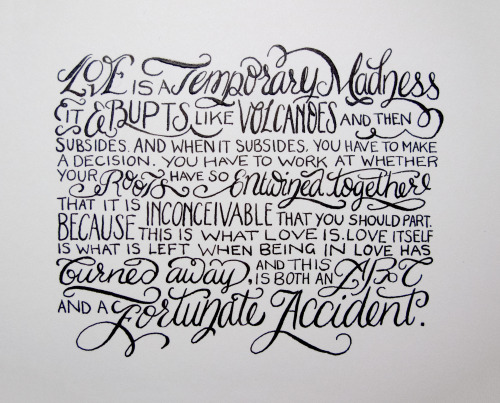 LOVE IS A Temporary Madness
IT ERUPTS LIKE VOLCANOES AND THEN
SUBSIDES. AND WHEN IT SUBSIDES, YOU HAVE TO MAKE
A DECISION. YOU HAVE TO WORK AT WHETHER
YOUR Roots HAVE SO Entwined together
THAT IT IS INCONCEIVABLE THAT YOU SHOULD PART.
BECAUSE THIS IS WHAT LOVE IS. LOVE ITSELF
IS WHAT IS LEFT WHEN BEING IN LOVE HAS
burned away, AND THIS IS BOTH AN ART
AND A Fortunate Accident.